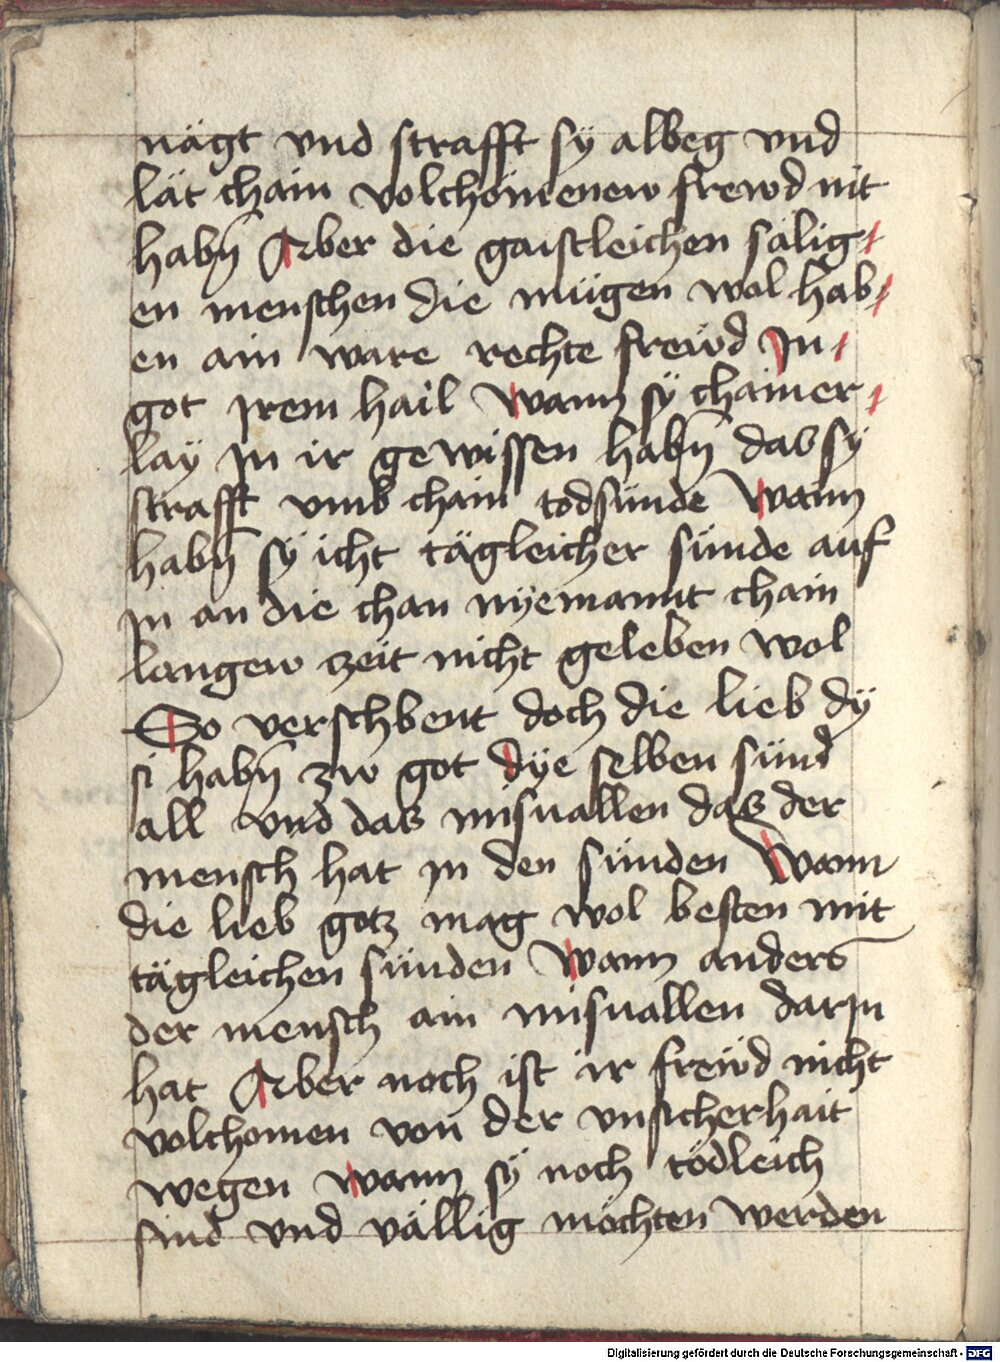 nägt vnd strafft sy albeg vnd
lät chain volchömenew frewd nit
habn̄ Aber die gaistleichen sälig
en menschen die mügen wol hab
en ain ware rechte frewd Jn
got jrem hail Wann sÿ chainer
laÿ jn ir gewissen habn̄ das sy
strafft vmb chain todsünde Wann
habn̄ sÿ icht tägleicher sünde auf
jn an die chan nÿemannt chain
langew zeit nicht geleben wol
So verschbent doch die lieb dÿ
si habn̄ zw got dÿe selben sünd
all vnd das misuallen das der
mensch hat jn den sünden Wann
die lieb gotz mag wol besten mit
tägleichen sünden Wann anders
der mensch ain misuallen darjn
hat Aber noch ist ir frewd nicht
volchomen von der vnsicherhait
wegen wann sÿ noch tödleich
sind vnd vällig möchten werden
Digitalisierung gefördert durch die Deutsche Forschungsgemeinschaft - DFG